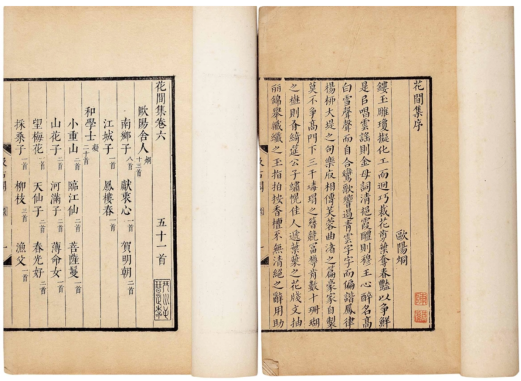 花間集序
歐陽烱
鏤玉雕瓊擬化工而迥巧裁花剪葉奪春豔以爭鮮
是㠯唱雲謡則金母詞清挹霞醴則穆王心醉名高
白雪聲聲而自合鸞歌響遏青雲字字而偏諧鳳律
楊柳大堤之句樂府相傳芙蓉曲渚之篇豪家自製
莫不爭高門下三千玳瑁之簪競富尊前數十珊瑚
之樹則有綺筵公子繡幌佳人遞葉葉之花牋文抽
麗錦舉纖纖之玉指拍按香檀不無清絕之辭用助
花間集卷六 五十一首
歐陽舍人烱 十三首
南鄉子 八首 獻衷心 一首 賀明朝 二首
江城子 一首 鳳樓春 一首
和學士凝 二十首
小重山 二首 臨江仙 二首 菩薩蠻 一首
山花子 二首 河滿子 二首 薄命女 一首
望梅花 一首 天仙子 二首 春光好 二首
採桑子 一首 柳枝 三首 漁父 一首